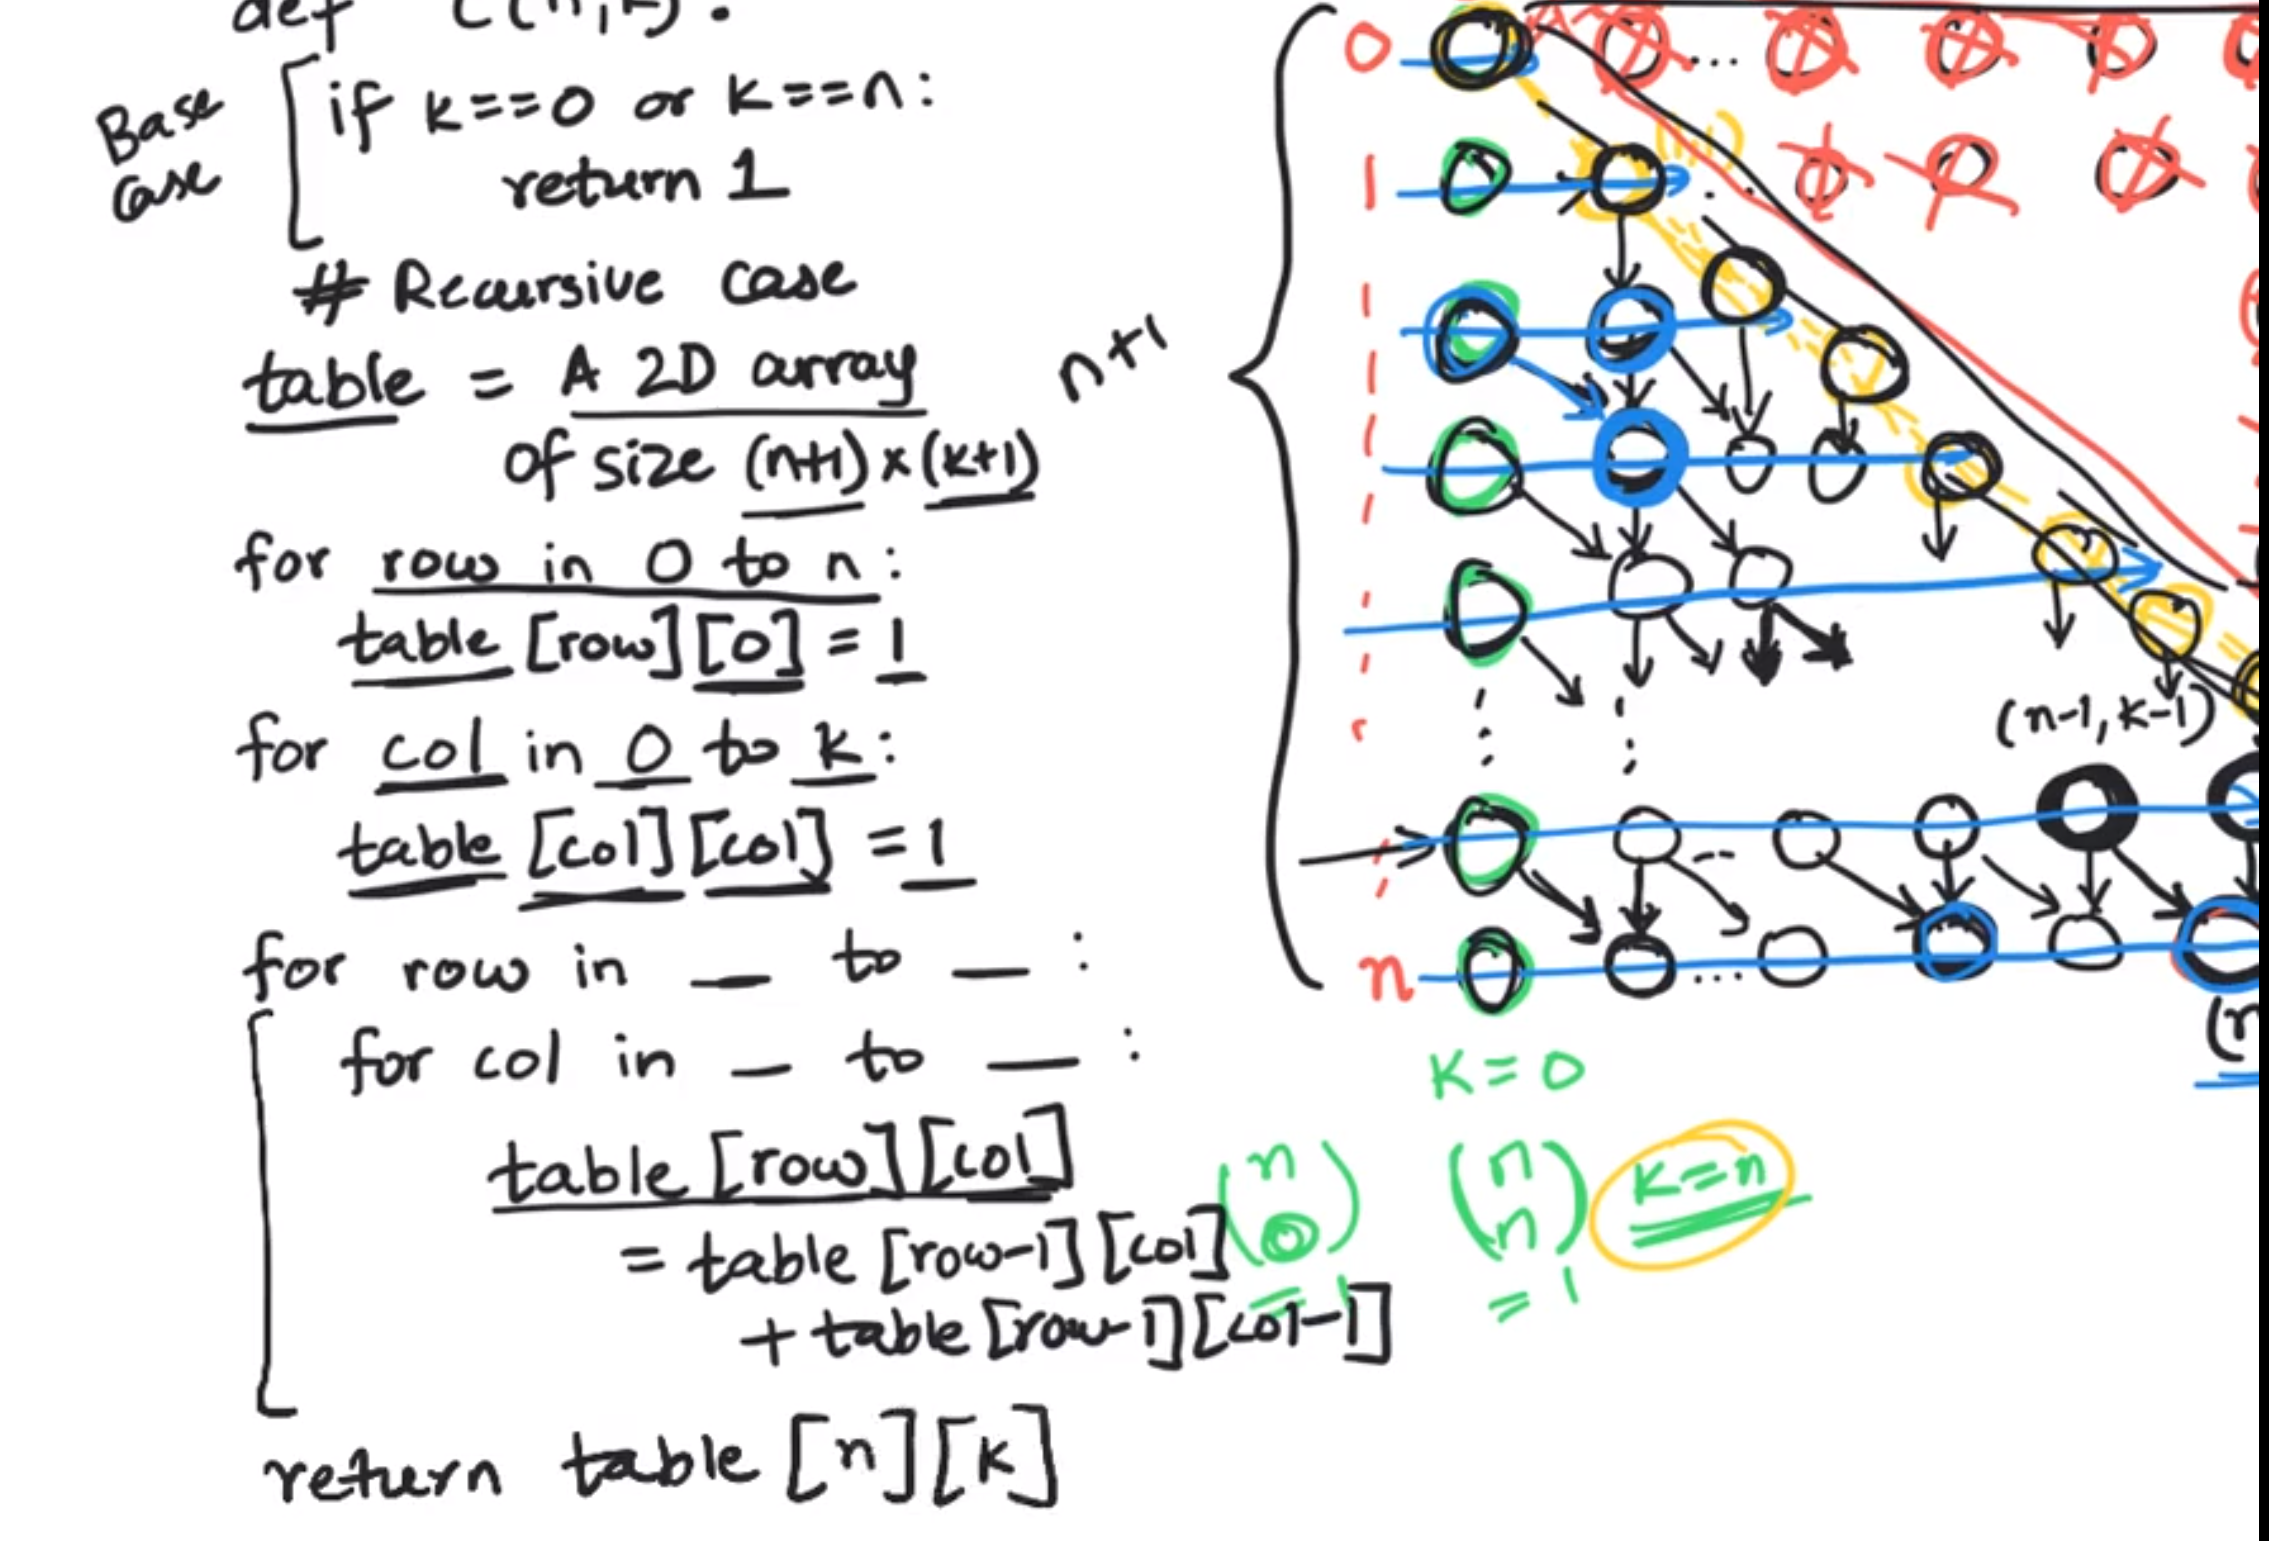 def C(n,k):
Base case
if k==0 or k==n:
return 1
# Recursive case
table = A 2D array
of size (n+1) x (k+1)
for row in 0 to n:
table [row][0] = 1
for col in 0 to k:
table [col][col] = 1
for row in __ to __ :
for col in __ to __ :
table [row][col]
= table [row-1][col]
+ table [row-1][col-1]
return table [n][k]
n+1
0
1
n
...
(1,1)
(n-1, k-1)
...
(n
k = 0
(n 0) = 1
(n n) = 1
k = n